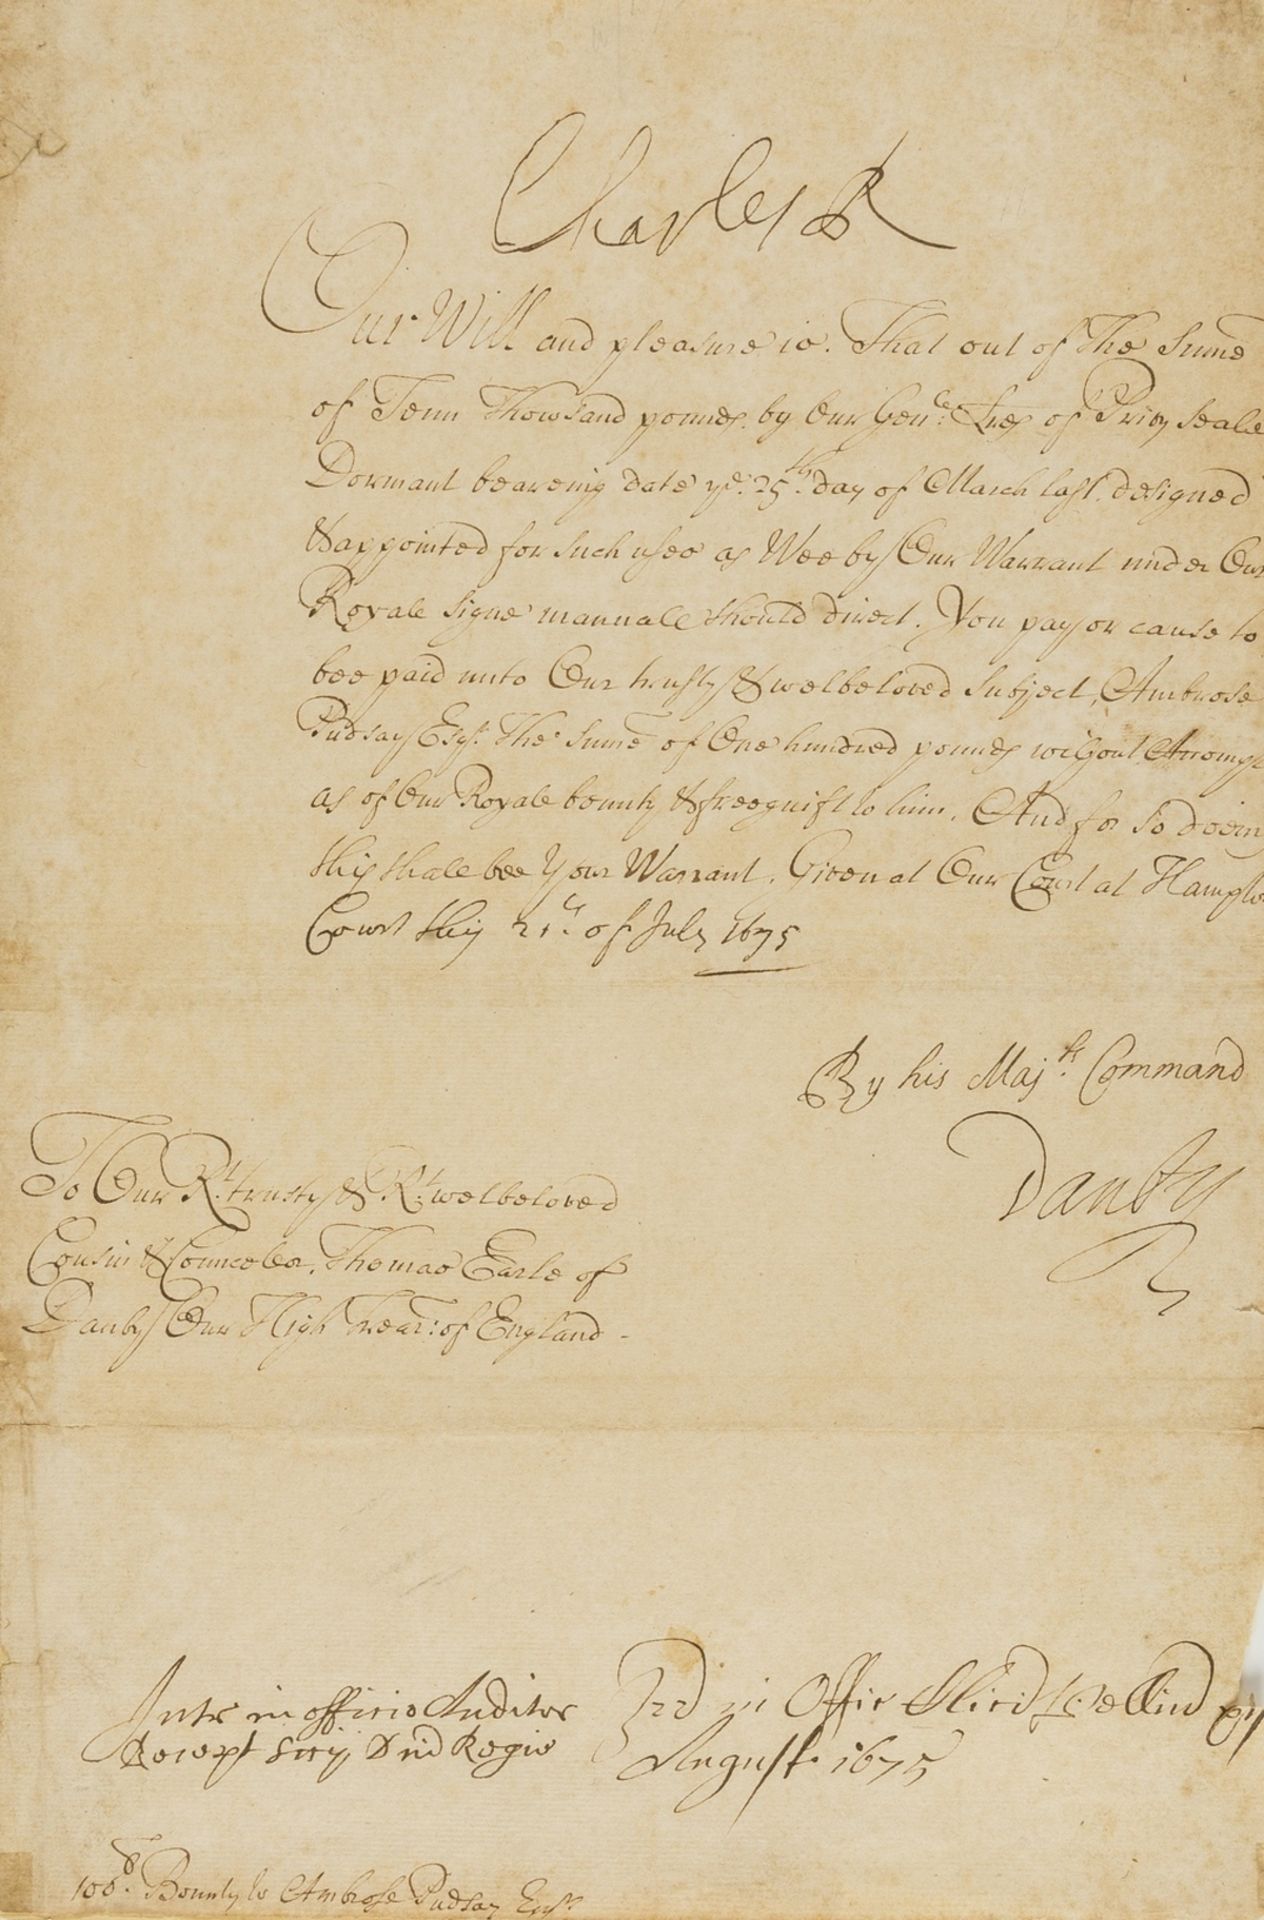 Charles R
Our Will and pleasure is. That out of the Sume
of Tenn Thowsand pounds. by Our Gen.ll Lres of Privy Seale
Dormant beareing date ye. 25th. day of March last. designed
& appointed for such uses as Wee by Our Warrant under Our
Royale Signe manuale should direct. You pay or cause to
bee paid unto Our trusty & welbeloved Subject, Ambrose
Pudsay Esqr. The Sume of One hundred pounds wthout Accompt
as of Our Royale bounty & free guift to him. And for so doein
this shale bee Your Warrant. Given at Our Court at Hampto
Court this 21th. of July 1675
By his Maj.ts Command
Danby
To Our Rt. trusty & Rt. welbeloved
Cousin & Councelor, Thomas Earle of
Danby Our High Trear: of England -
Intr in officio Auditor
Recept Sccij Dni Regis
Ird in Offic
August. 1675
100l. Bounty to Ambrose Pudsay Esqr